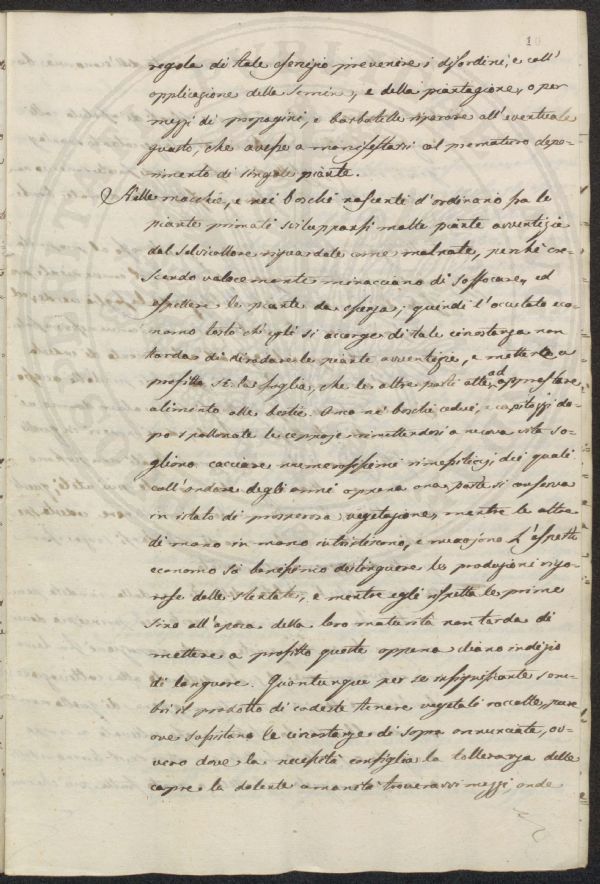 10
regola di tale esercizio prevenire i disordini, e coll'
applicazione della Semin; e della piantagione, o per
mezzi di propagini, e barbatelle riparare all'eventuale
guasto, che avesse a manifestarsi al prematuro depe-
rimento di singole piante.
Nelle macchie, e nei boschi nascenti d'ordinario fra le
piante primati svilupparsi molte piante avventizie
dal Selvicoltore riguardate come malnate, perché cre-
scendo valocemente minacciano di soffocare, ed
espellere le piante da essenza; quindi l'occulato eco-
nomo tosto ch'egli si accorge di tale circostanza non
tarda di diradare le piante avventizie, e mettere a
profitto sì la foglia, che le altre parti atte ad apprestare
alimento alle bestie. Anco ne' boschi cedui, e capitozzi do-
po spollonate le ceppaje rimettendosi a nuova vita so-
gliono cacciare numerosissimi rimessiticcj, dei quali
coll'andare degli anni appena una parte si conserva
in istato di prosperosa vegetazione, mentre le altre
di mano in mano intristiscono, e muojono. L'esperto
economo sa benissimo distinguere le produzioni vigo-
rose dalle stentate, e mentre egli rispetta le prime
sino all'epoca della loro maturità non tarda di
mettere a profitto queste appena diano indizio
di languore. Quantunque per se insignificante sem-
bri il prodotto di codeste tenere vegetali raccolte, pure
ove sussistano le circostanze di sopra annunciate, ov-
vero dove la necessità consiglia la tolleranza delle
capre la dolente umanità troverassi mezzi, onde